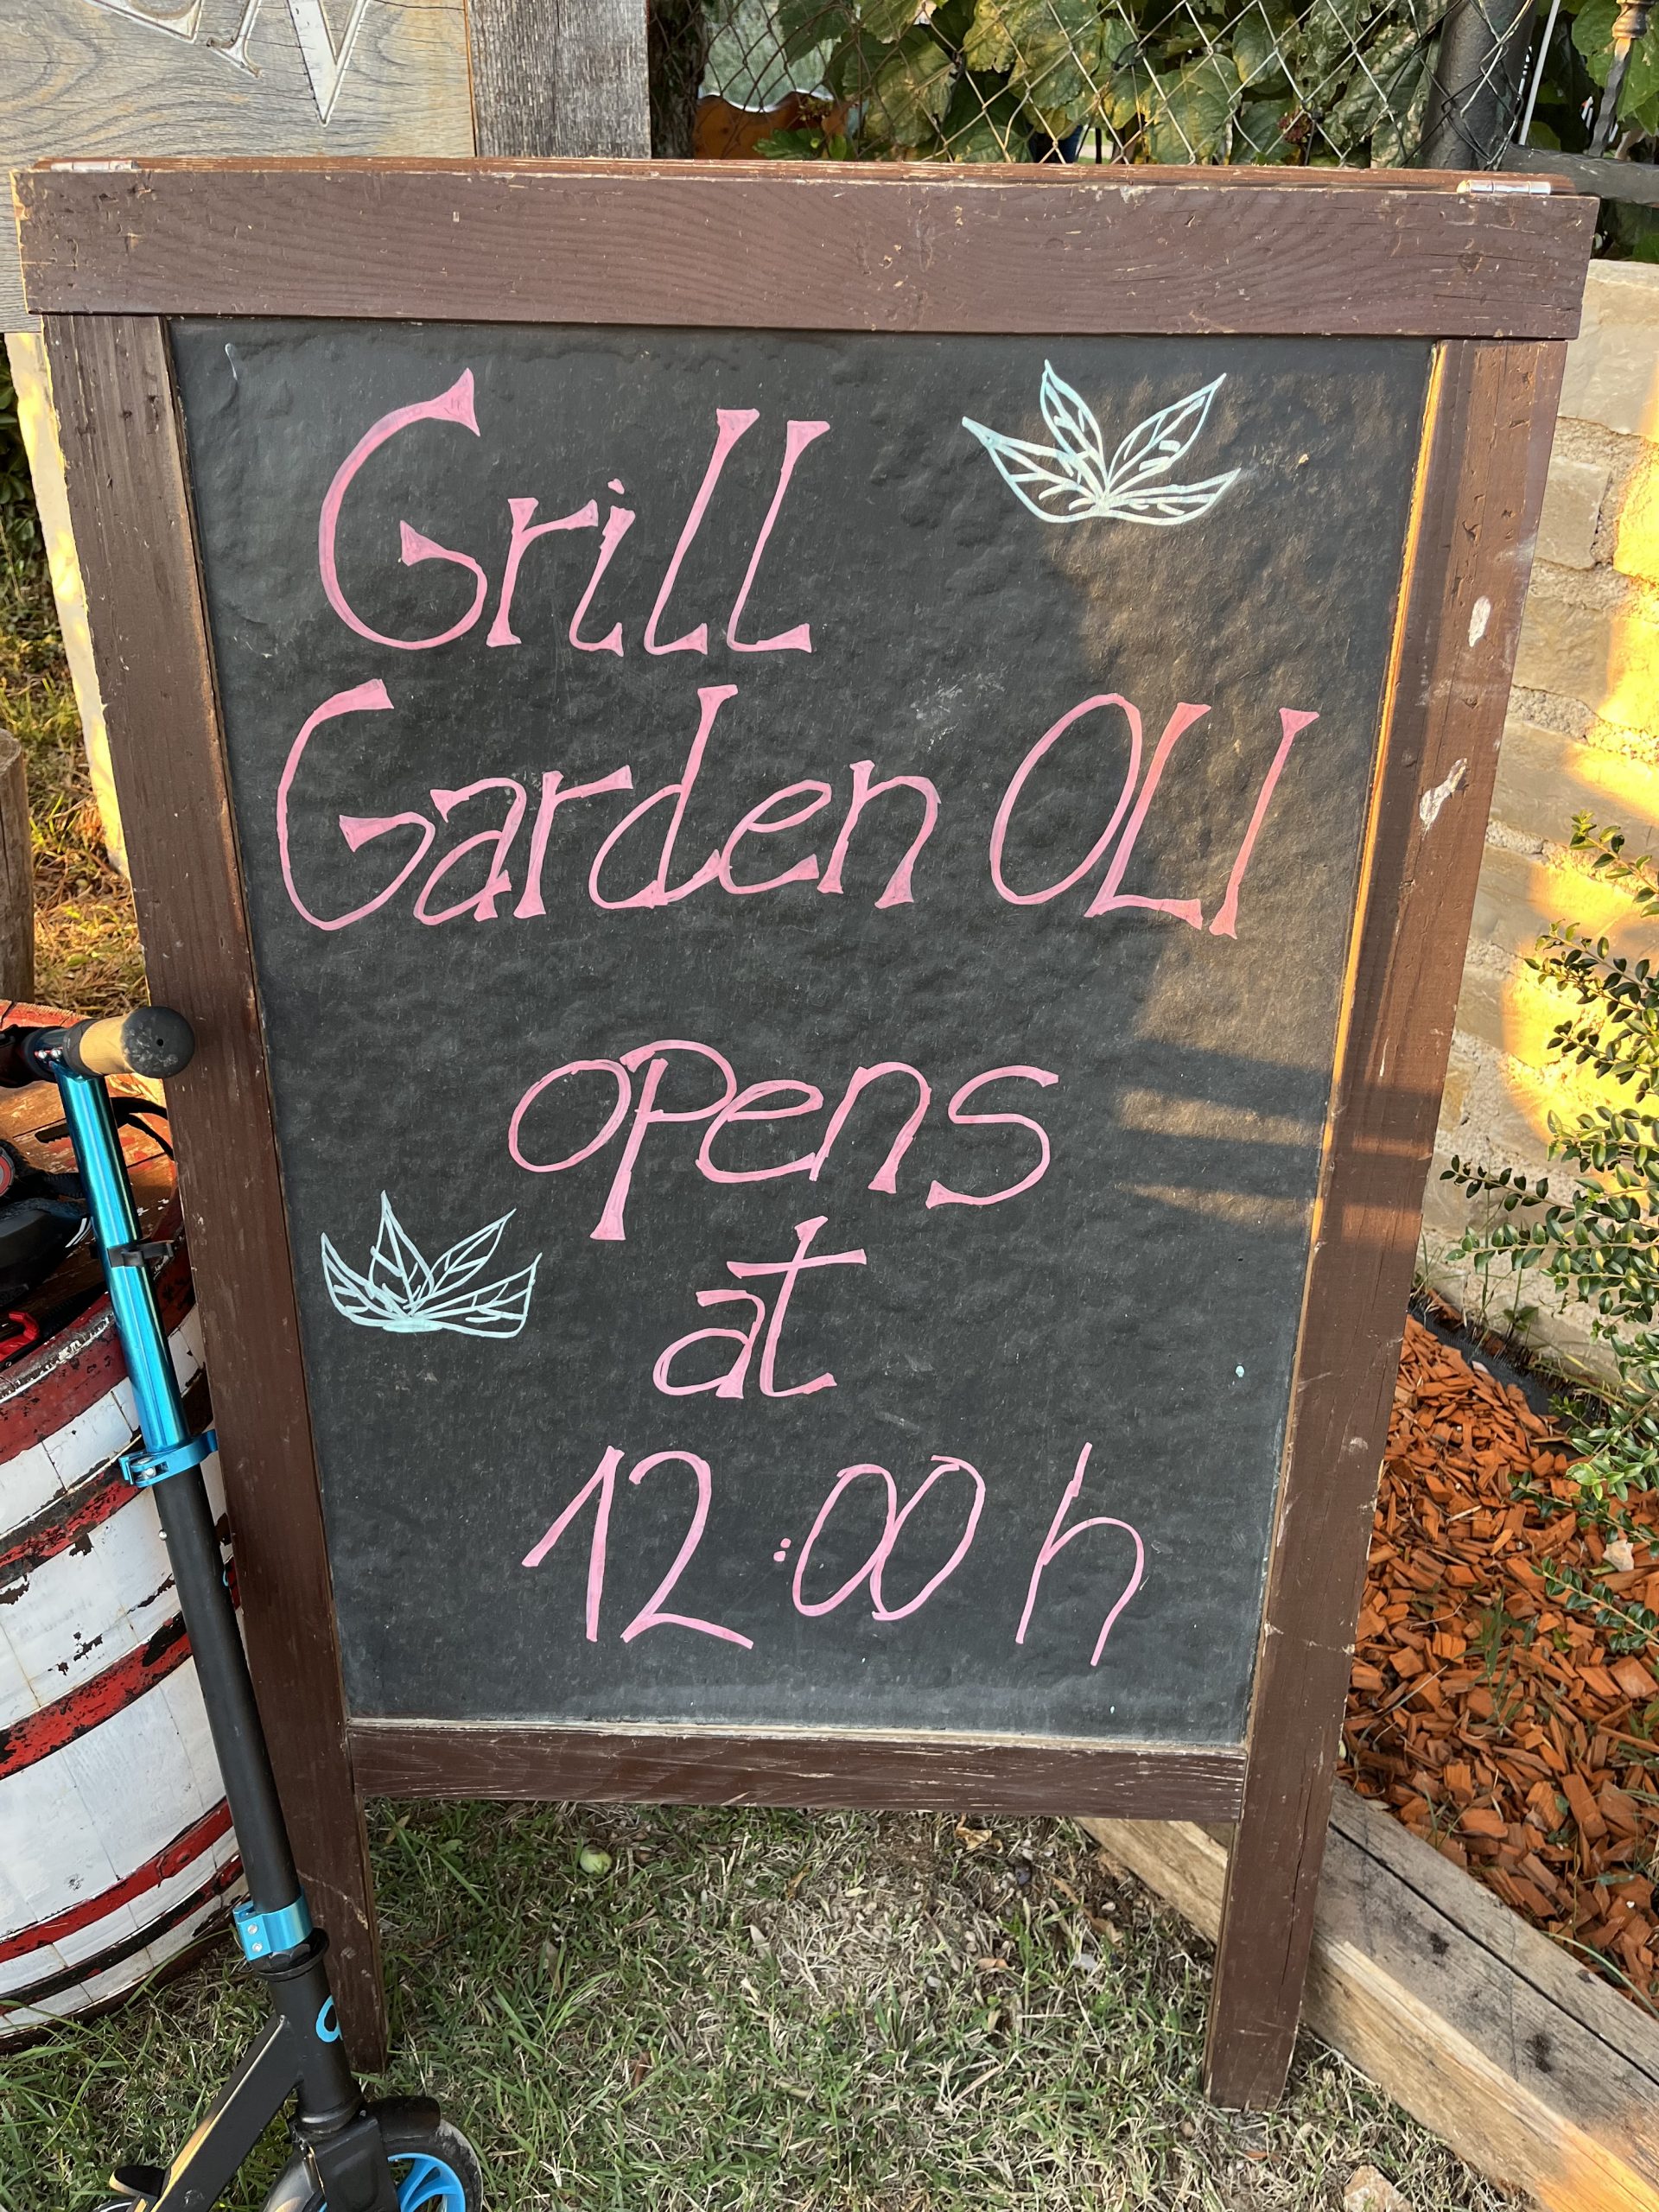 Grill
Garden OLI
opens
at
12:00 h